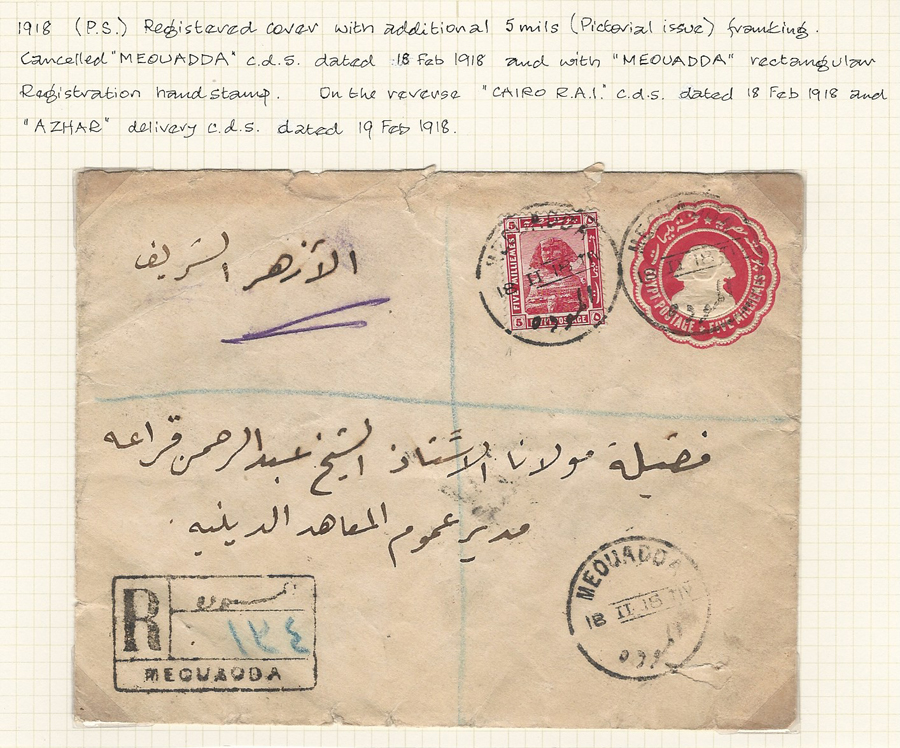 1918 (P.S.) Registered cover with additional 5mils (Pictorial issue) franking.
Cancelled "MEOUADDA" c.d.s. dated 18 Feb 1918 and with "MEOUADDA" rectangular
Registration handstamp. On the reverse "CAIRO R.A.I." c.d.s. dated 18 Feb 1918 and
"AZHAR" delivery c.d.s. dated 19 Feb 1918.
الأزهر الشريف
FIVE MILLIEMES
5 POSTAGE ٥
EGYPT POSTAGE FIVE MILLIEMES
18 II 18
فضيلة مولانا الاستاذ الشيخ عبد الرحمن قراعه
مدير عموم المعاهد الدينيه
MEOUADDA
18 II 18
R
١٣٤
MEOUADDA